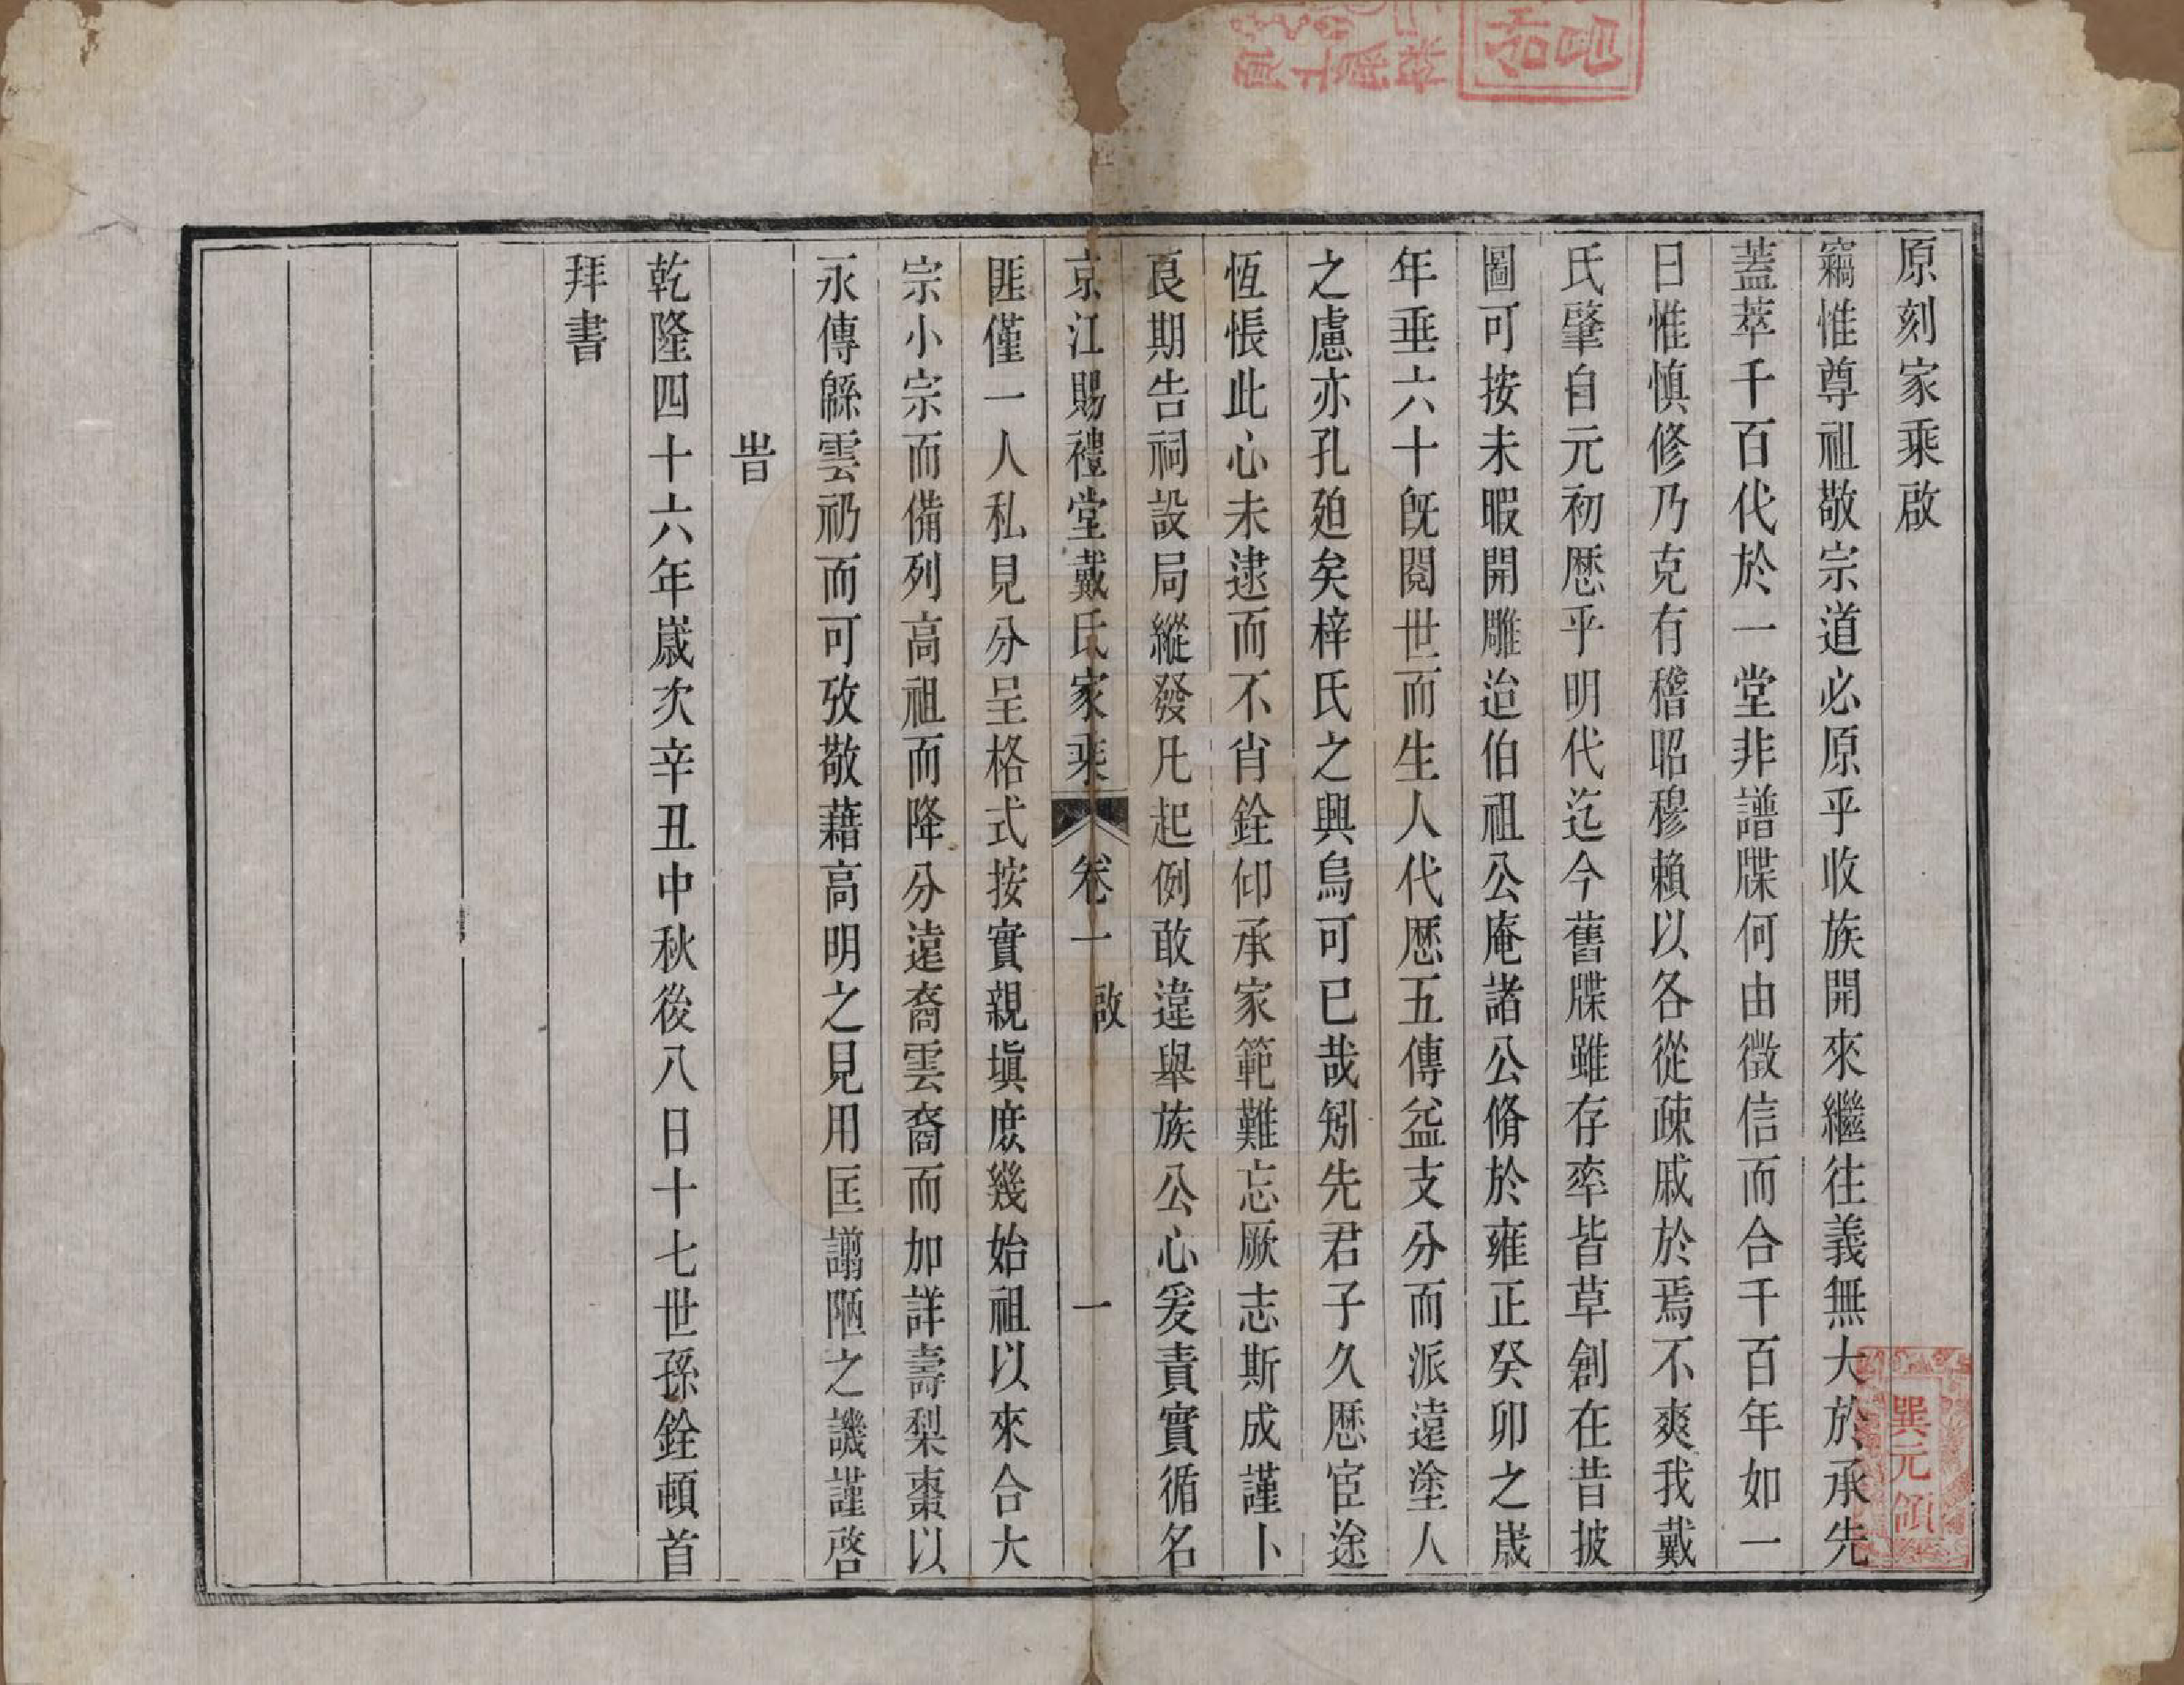 原刻家乘啟
竊惟尊祖敬宗道必原乎收族開來繼往義無大於承先
蓋萃千百代於一堂非譜牒何由徵信而合千百年如一
日惟慎修乃克有稽昭穆賴以各從疎戚於焉不爽我戴
氏肇自元初歷乎明代迄今舊牒雖存率皆草創在昔披
圖可按未暇開雕迨伯祖公庵諸公脩於雍正癸卯之歲
年垂六十既閱世而生人代歷五傳益支分而派遠塗人
之慮亦孔廹矣梓氏之興烏可已哉矧先君子久歷宦途
恆悵此心未逮而不肖銓仰承家範難忘厥志斯成謹卜
良期告祠設局縱發凡起例敢違舉族公心爰責實循名
京江賜禮堂戴氏家乘 卷一 啟 一
匪僅一人私見分呈格式按實親塡庶幾始祖以來合大
宗小宗而備列高祖而降分遠裔雲裔而加詳壽梨棗以
永傳緜雲礽而可攷敬藉高明之見用匡謭陋之譏謹啓
旹
乾隆四十六年歲次辛丑中秋後八日十七世孫銓頓首
拜書
巽元領